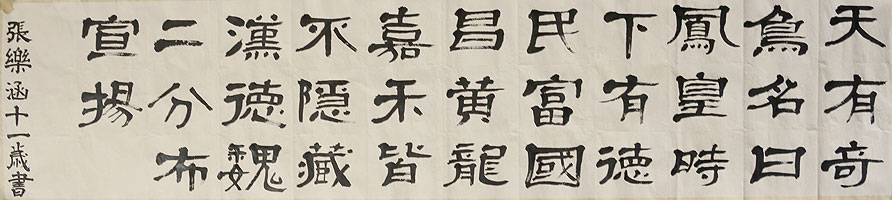 天有奇
鳥名曰
鳳皇時
下有德
民富國
昌黄龍
嘉禾皆
不隱藏
漢德魏
二分布
宣揚
張樂涵十一歲書